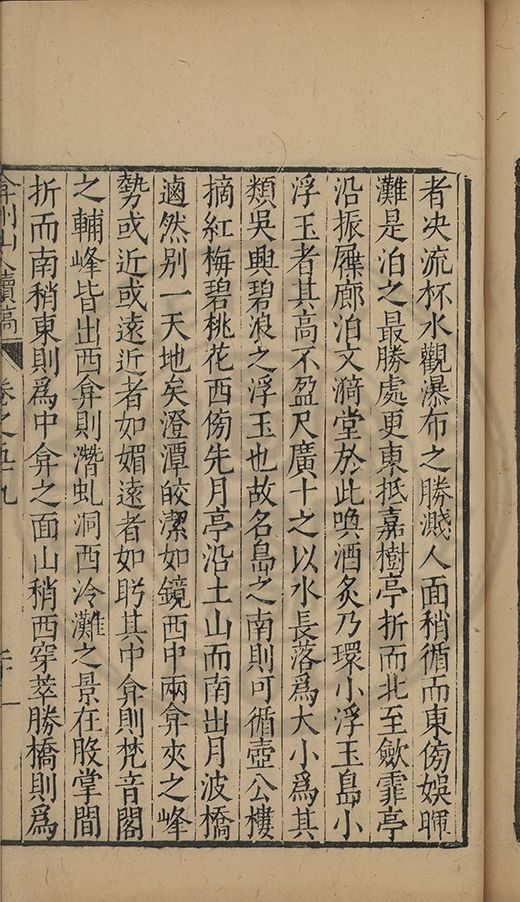 者决流杯水觀瀑布之勝濺人面稍循而東傍娛暉
灘是泊之最勝處更東抵嘉樹亭折而北至歛霏亭
沿振屧廊泊文漪堂於此喚酒炙乃環小浮玉島小
浮玉者其高不盈尺廣十之以水長落為大小為其
類吳興碧浪之浮玉也故名島之南則可循壺公樓
摘紅梅碧桃花西傍先月亭沿土山而南出月波橋
逌然别一天地矣澄潭皎潔如鏡西中兩弇夾之峰
勢或近或遠近者如媚遠者如盻其中弇則梵音閣
之輔峰皆出西弇則潛虬洞西泠灘之景在股掌間
折而南稍東則為中弇之面山稍西穿萃勝橋則為
弇州山人續稿
卷之五十九